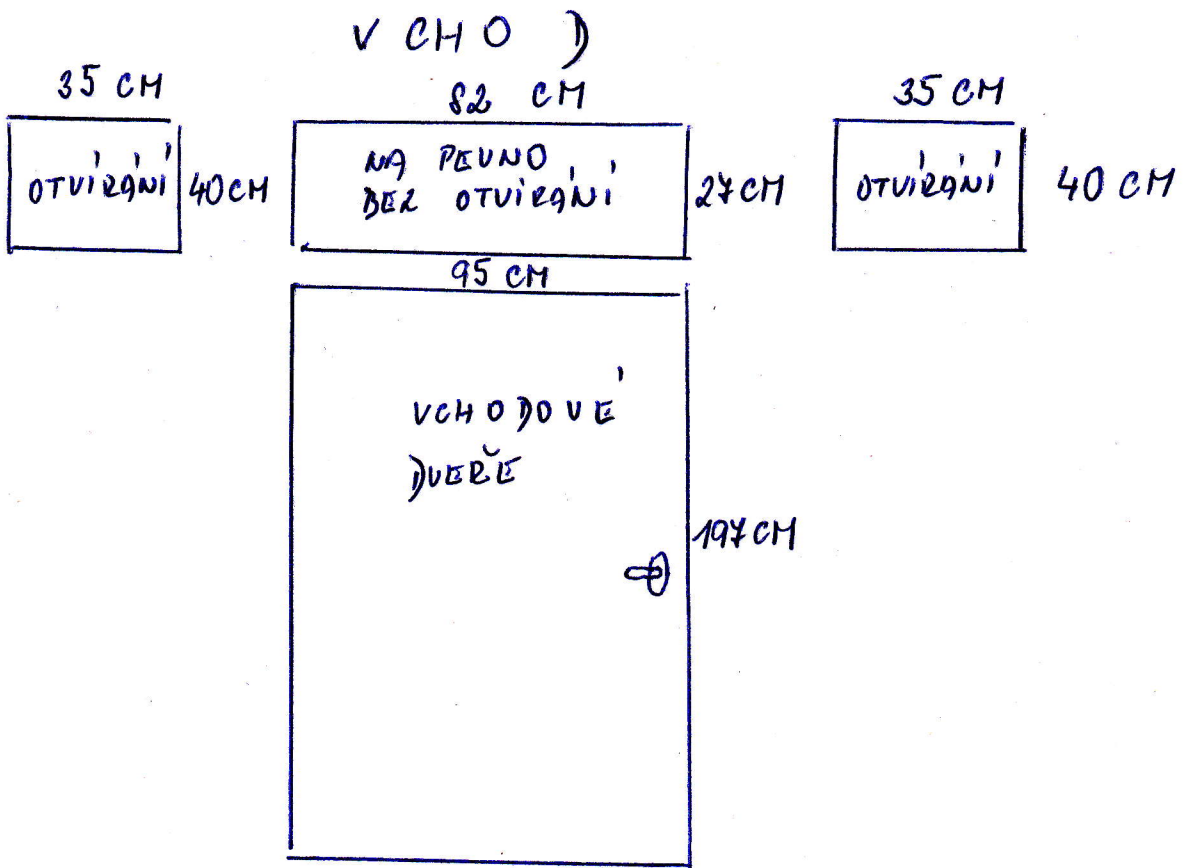 VCHOD
35 CM
82 CM
35 CM
OTVÍRÁNÍ
40CM
NA PEVNO
BEZ OTVÍRÁNÍ
27CM
OTVÍRÁNÍ
40 CM
95 CM
VCHODOVÉ
DVEŘE
197CM